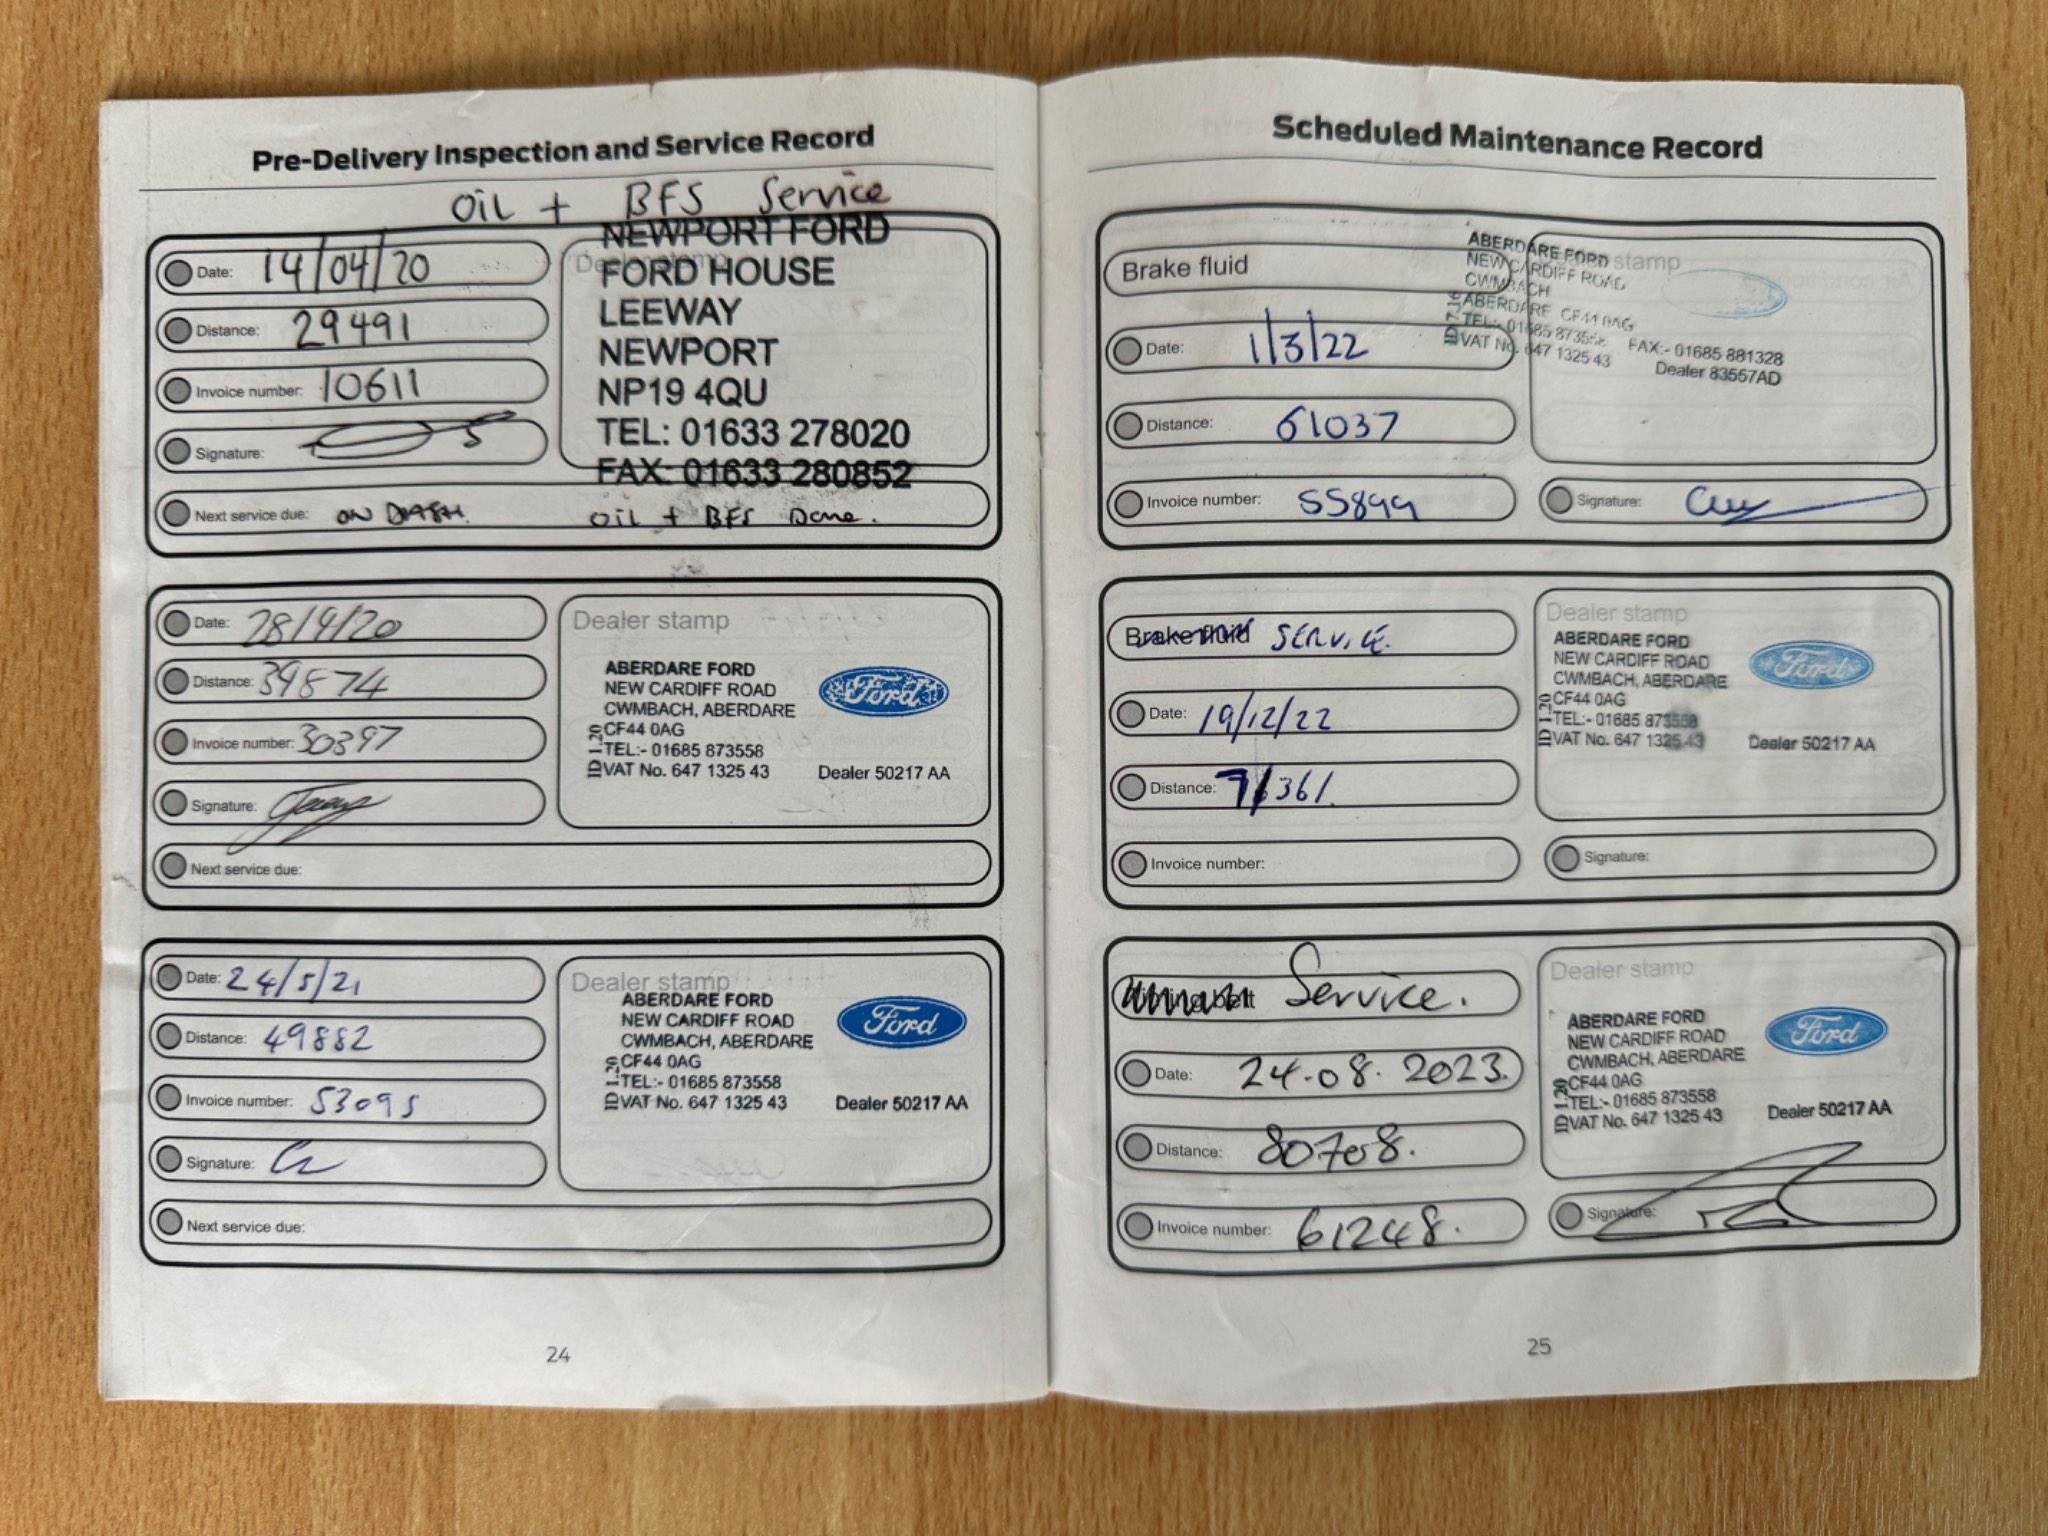 Pre-Delivery Inspection and Service Record
Oil + BFS Service
Date: 14/04/20
Distance: 29491
Invoice number: 10611
Signature:
Next service due: ON DASH. Oil + BFS Done.
Dealer stamp
NEWPORT FORD
FORD HOUSE
LEEWAY
NEWPORT
NP19 4QU
TEL: 01633 278020
FAX: 01633 280852
Date: 28/9/20
Distance: 39874
Invoice number: 30397
Signature:
Next service due:
Dealer stamp
ABERDARE FORD
NEW CARDIFF ROAD
CWMBACH, ABERDARE
CF44 0AG
TEL:- 01685 873558
VAT No. 647 1325 43
ID 1.20
Ford
Dealer 50217 AA
Date: 24/5/21
Distance: 49882
Invoice number: 53095
Signature:
Next service due:
Dealer stamp
ABERDARE FORD
NEW CARDIFF ROAD
CWMBACH, ABERDARE
CF44 0AG
TEL:- 01685 873558
VAT No. 647 1325 43
ID 1.20
Ford
Dealer 50217 AA
24
Scheduled Maintenance Record
Brake fluid
Date: 1/3/22
Distance: 61037
Invoice number: 55899
Signature:
Dealer stamp
ABERDARE FORD
NEW CARDIFF ROAD
CWMBACH
ABERDARE CF44 0AG
TEL:- 01685 873558 FAX:- 01685 881328
VAT No. 647 1325 43 Dealer 83557AD
Brake fluid SERVICE.
Date: 19/12/22
Distance: 71361.
Invoice number:
Signature:
Dealer stamp
ABERDARE FORD
NEW CARDIFF ROAD
CWMBACH, ABERDARE
CF44 0AG
TEL:- 01685 873558
VAT No. 647 1325 43
ID 1.20
Ford
Dealer 50217 AA
Timing belt Service.
Date: 24.08.2023.
Distance: 80708.
Invoice number: 61248.
Signature:
Dealer stamp
ABERDARE FORD
NEW CARDIFF ROAD
CWMBACH, ABERDARE
CF44 0AG
TEL:- 01685 873558
VAT No. 647 1325 43
ID 1.20
Ford
Dealer 50217 AA
25